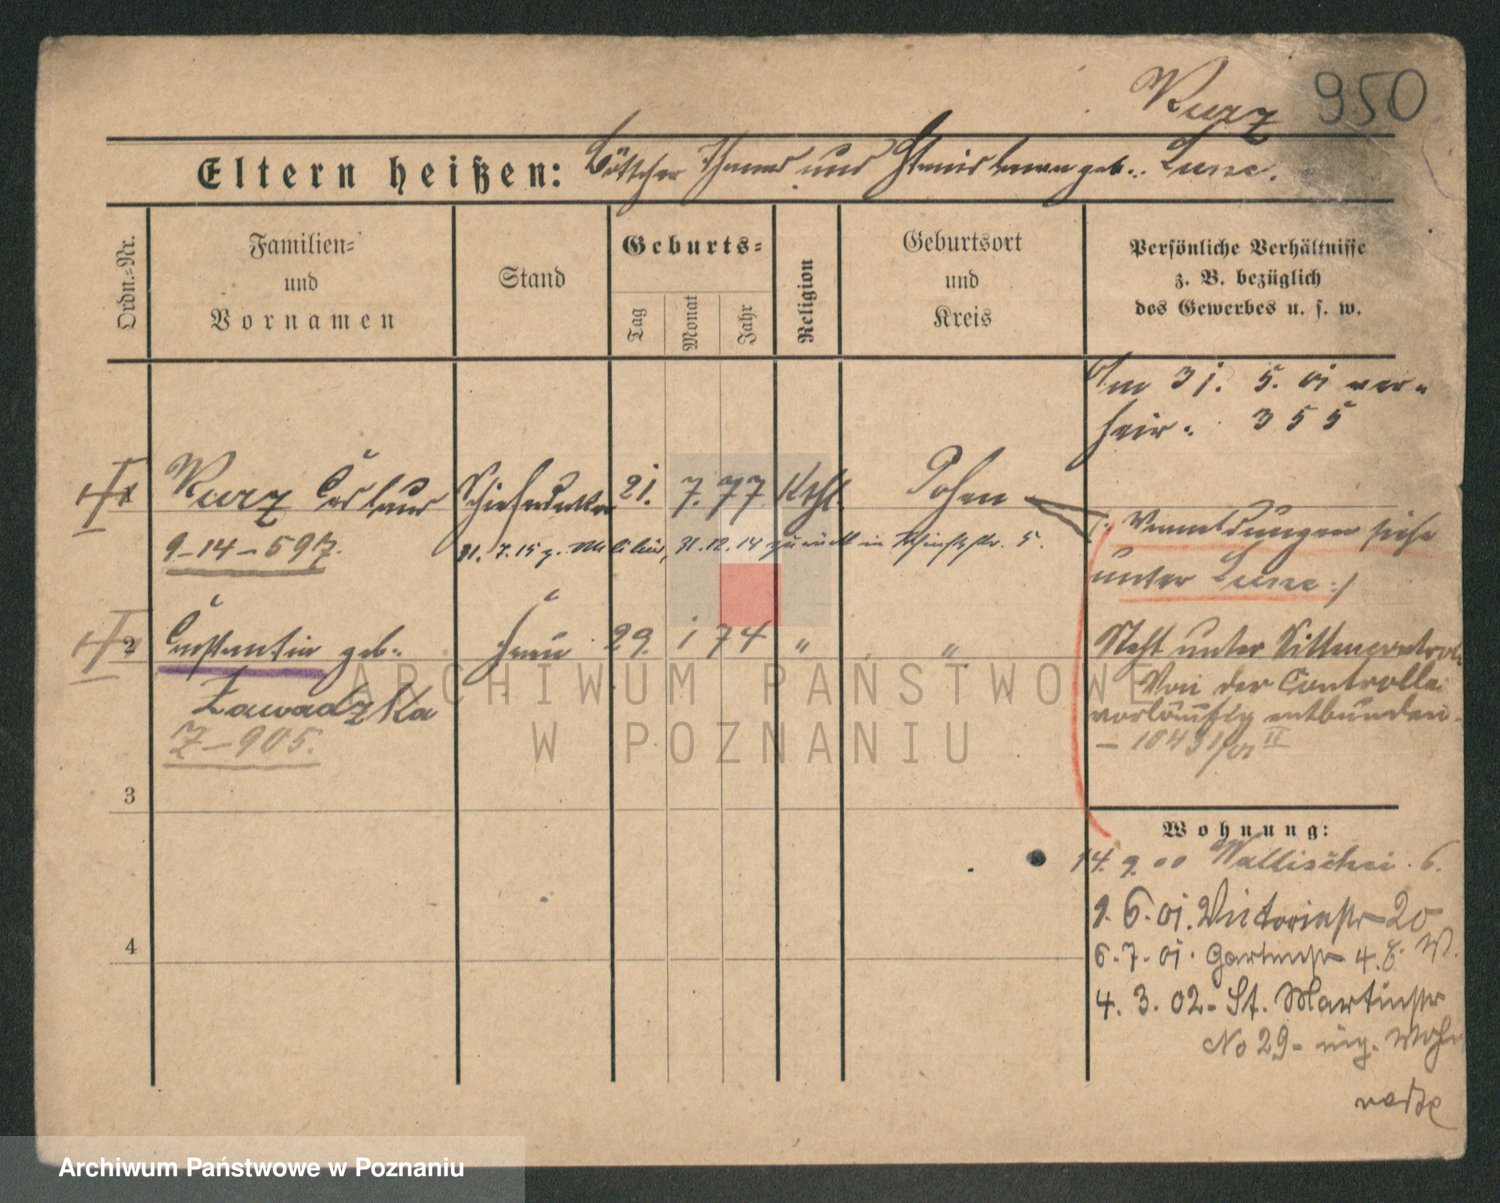 Kurz 950
Eltern heißen: Böttcher Thomas und Stanislawa geb. Kurz.
Ordn.=Nr.
Familien=
und
Vornamen
Stand
Geburts=
Tag
Monat
Jahr
Religion
Geburtsort
und
Kreis
Persönliche Verhältnisse
z. B. bezüglich
des Gewerbes u. s. w.
Am 31. 5. 01 ver-
heir. 355
1 Kurz 21. 7. 77 Kthl. Posen
9-14-597.
31. 7. 15 z. Militär, 31. 12. 14 zurück in 5.
Meldungen siehe
unter
2 Constantia geb. Frau 29. 1 74 " "
Zawadzka
Z-905.
Steht unter Sittencontrole
Von der Controlle
vorläufig entbunden
- 10431/01 II
3
Wohnung:
14. 9. 00 Wallischei. 6.
9. 6. 01. Victoriastr 20
4
6. 7. 01. Gartenstr 4. b. W.
4. 3. 02 - St. Martinstr
No 29 - eig. Wohn
ARCHIWUM PAŃSTWOWE
W POZNANIU
Archiwum Państwowe w Poznaniu